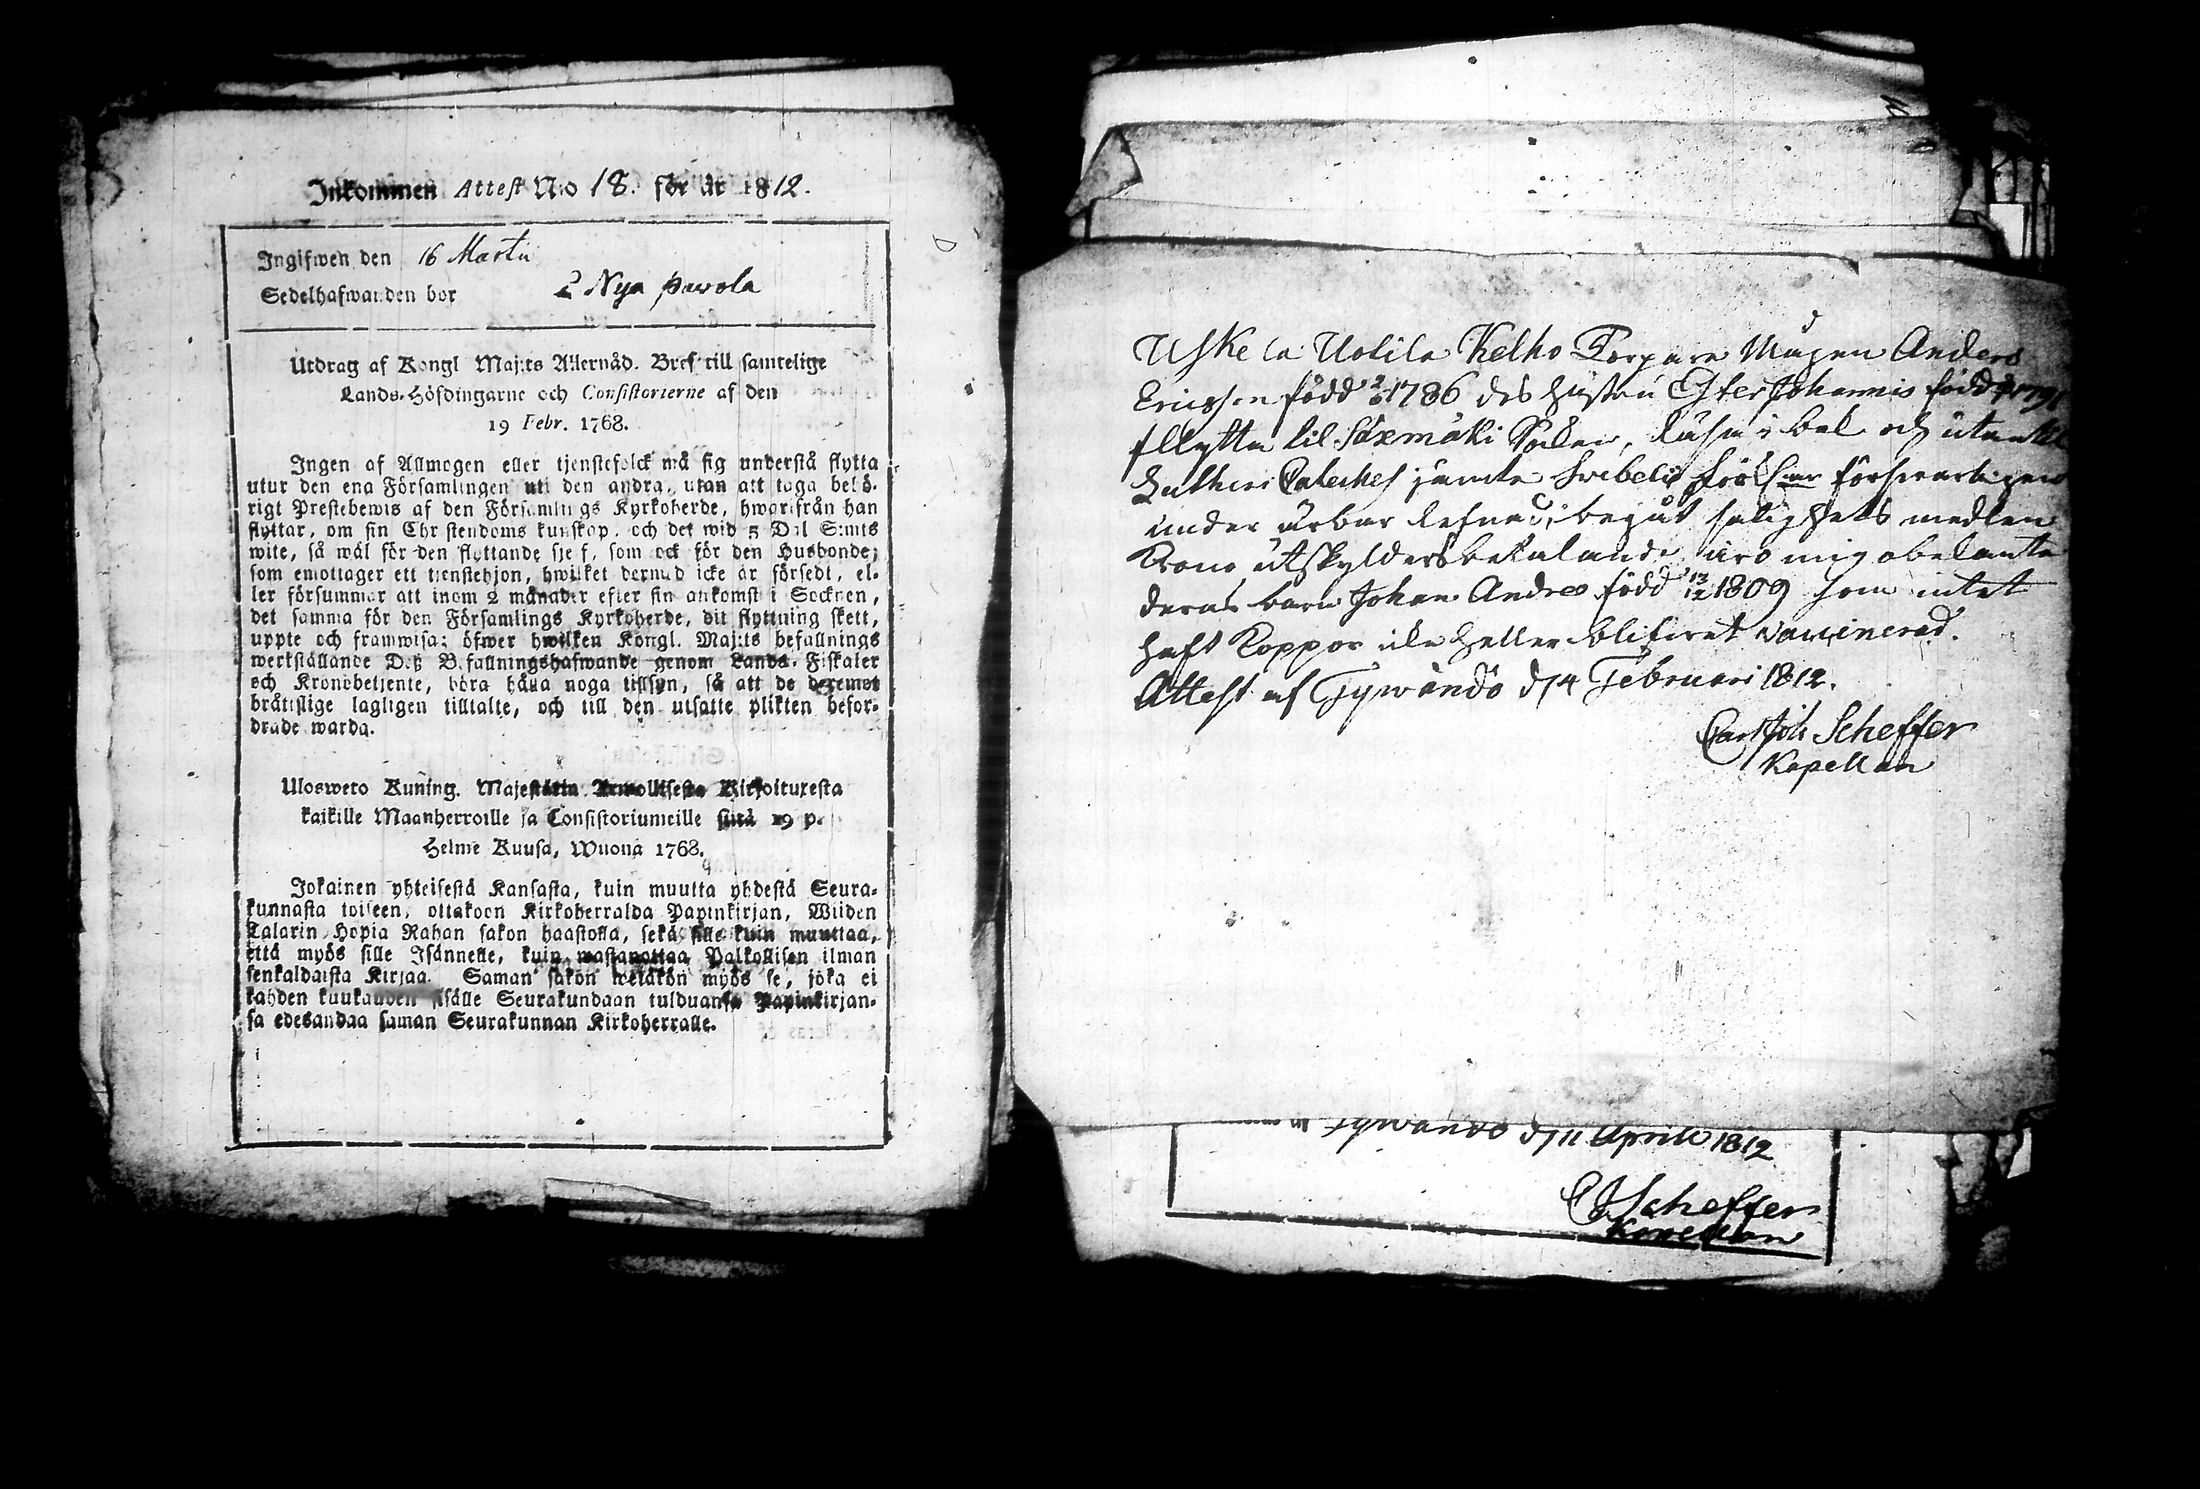 Inkommen Attest No 18. för år 1812.
Ingifwen den 16 Martii
Sedelhafwanden bor 2 Nya pawola
Utdrag af Kongl Maj:ts Allernåd. Bref till samtelige
Lands-Höfdingarne och Consistorierne af den
19 Febr. 1768.
Ingen af Allmogen eller tjenstefolck må sig understå flytta
utur den ena Församlingen uti den andra, utan att taga behö-
rigt Prestebewis af den Församlings Kyrkoherde, hwarifrån han
flyttar, om sin Christendoms kunskap, och det wid 5 Dal. S:mts
wite, så wäl för den flyttande sjelf, som ock för den Husbonde;
som emottager ett tjenstehjon, hwilket dermed icke är försedt, el-
ler försummar att inom 2 månader efter sin ankomst i Socknen,
det samma för den Församlings Kyrkoherde, dit flyttning skett,
uppte och framwisa; öfwer hwilken Kongl. Maj:ts befallnings
werkställande Deß Befallningshafwande genom Lands-Fiskaler
och Kronobetjente, böra hålla noga tillsyn, så att de deremot
bråttslige lagligen tilltalte, och till den utsatte plikten befor-
drade warda.
Ulosweto Kuning. Majestätin Armollisesta Kirjoituxesta
kaikille Maanherroille ja Consistoriumeille siitä 19 p.
Helme Kuusa, Wuonä 1768.
Jokainen yhteisestä Kansasta, kuin muutta yhdestä Seura-
kunnasta toiseen, ottakoon Kirkoherralda Papinkirjan, Wiiden
Talarin Hopia Rahan sakon haastolla, sekä sille kuin muuttaa,
että myös sille Isännelle, kuin wastanottaa Palkollisen ilman
senkaldaista Kirjaa. Saman sakon wetäkön myös se, joka ei
kahden kuukauden sisälle Seurakundaan tulduansa Papinkirjan-
sa edesandaa saman Seurakunnan Kirkoherralle.
Uskela Uotila Kelho Torpare Mågen Anders
Ericsson född 1786 des hustru Ester Johannis född
flytta til Säxmäki Socken, läsa i bok och utantil
Lutheri Cateches jämte Svebelii försvarligen
under ärbar lefnad, begåt salighets medlen
Krono utskylders betalande äro mig obekante
deras barn Johan Andreas född 13/12 1809 som intet
haft Koppor icke heller blifwit vaccinerad.
Attest af Tyrwändö d 14 Februari 1812.
Carl Joh Scheffer
Kapellan
Tyrwändö d 11 April 1812
CJ Scheffer
Kapellan